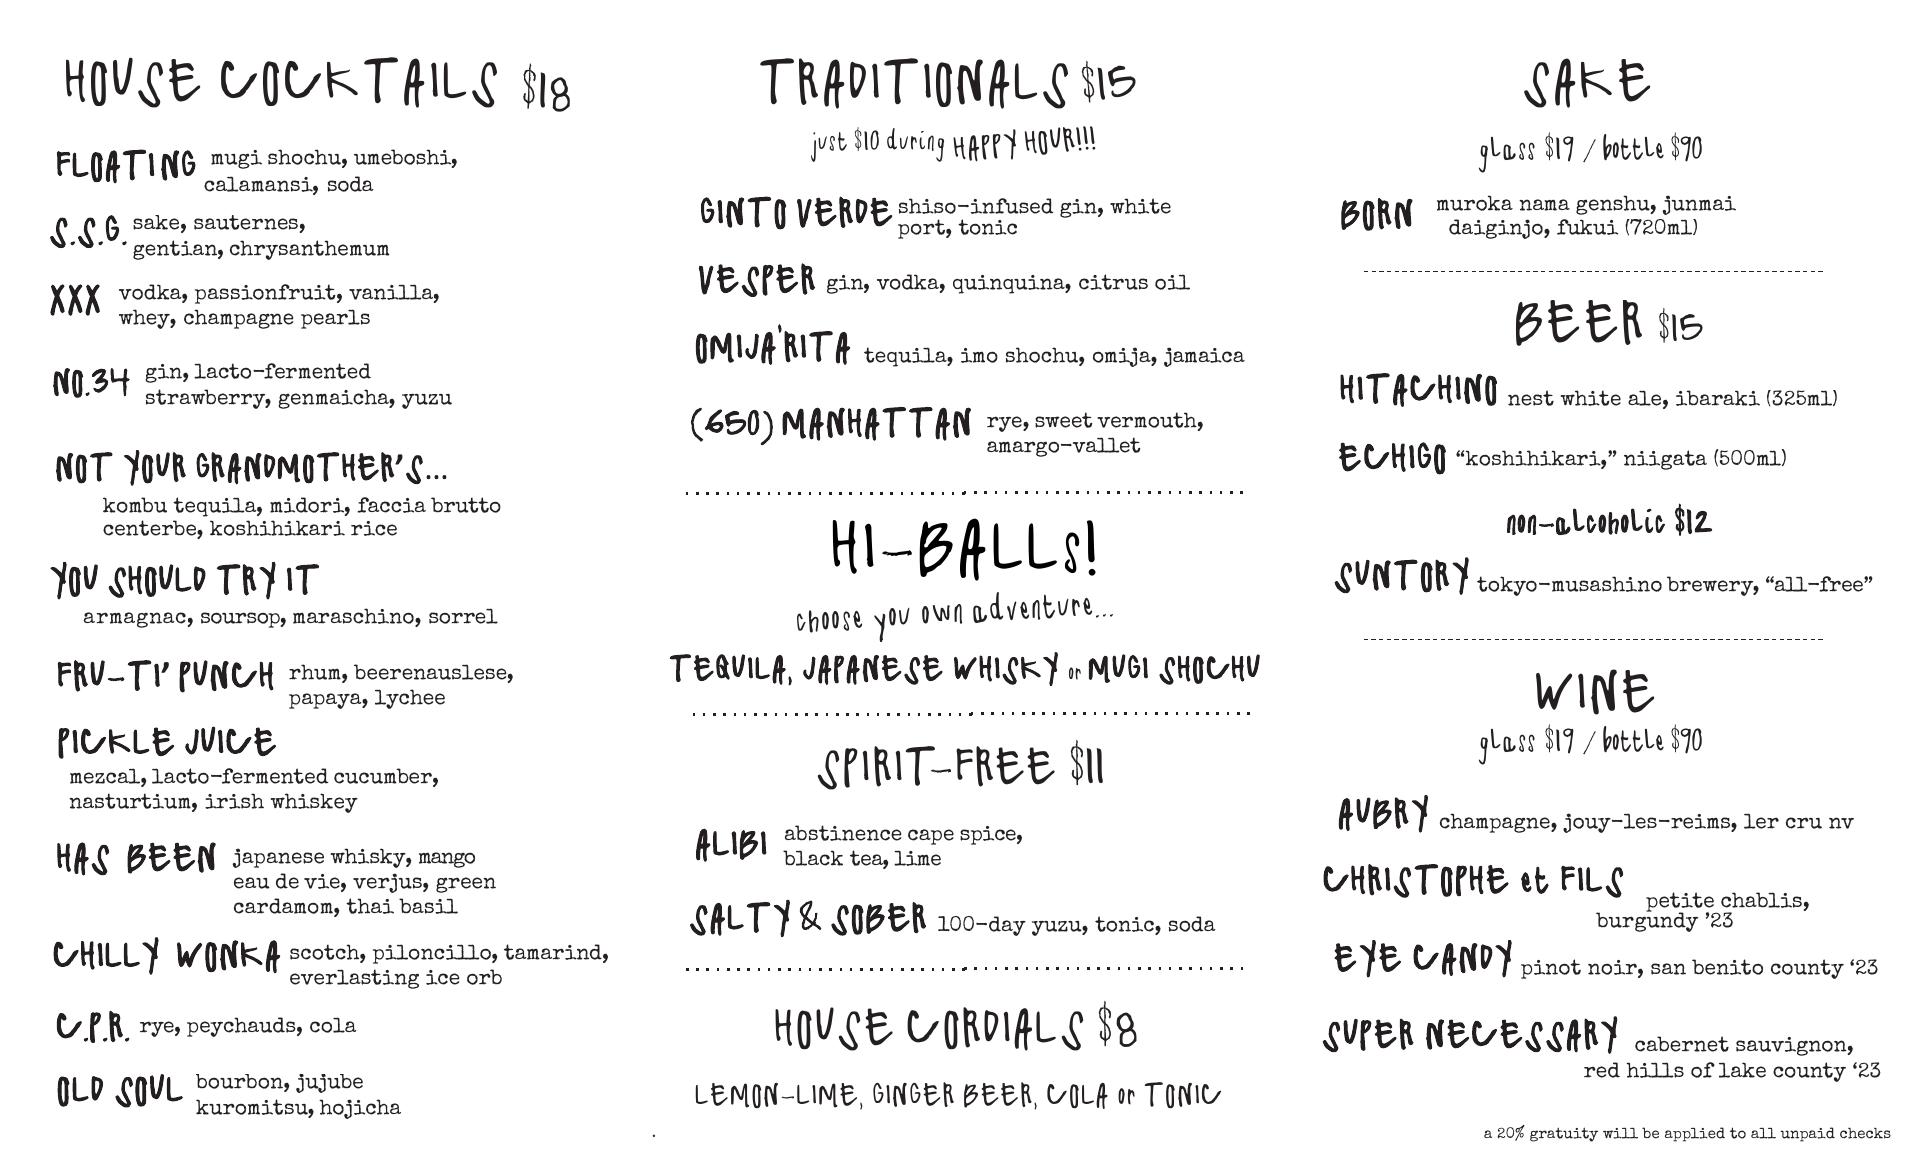 HOUSE COCKTAILS $18
FLOATING mugi shochu, umeboshi,
calamansi, soda
S.S.G. sake, sauternes,
gentian, chrysanthemum
XXX vodka, passionfruit, vanilla,
whey, champagne pearls
NO.34 gin, lacto-fermented
strawberry, genmaicha, yuzu
NOT YOUR GRANDMOTHER'S...
kombu tequila, midori, faccia brutto
centerbe, koshihikari rice
YOU SHOULD TRY IT
armagnac, soursop, maraschino, sorrel
FRU-TI' PUNCH rhum, beerenauslese,
papaya, lychee
PICKLE JUICE
mezcal, lacto-fermented cucumber,
nasturtium, irish whiskey
HAS BEEN japanese whisky, mango
eau de vie, verjus, green
cardamom, thai basil
CHILLY WONKA scotch, piloncillo, tamarind,
everlasting ice orb
C.P.R. rye, peychauds, cola
OLD SOUL bourbon, jujube
kuromitsu, hojicha
TRADITIONALS $15
just $10 during HAPPY HOUR!!!
GINTO VERDE shiso-infused gin, white
port, tonic
VESPER gin, vodka, quinquina, citrus oil
OMIJA'RITA tequila, imo shochu, omija, jamaica
(650) MANHATTAN rye, sweet vermouth,
amargo-vallet
HI-BALLs!
choose you own adventure...
TEQUILA, JAPANESE WHISKY or MUGI SHOCHU
SPIRIT-FREE $11
ALIBI abstinence cape spice,
black tea, lime
SALTY & SOBER 100-day yuzu, tonic, soda
HOUSE CORDIALS $8
LEMON-LIME, GINGER BEER, COLA or TONIC
SAKE
glass $19 / bottle $90
BORN muroka nama genshu, junmai
daiginjo, fukui (720ml)
BEER $15
HITACHINO nest white ale, ibaraki (325ml)
ECHIGO “koshihikari,” niigata (500ml)
non-alcoholic $12
SUNTORY tokyo-musashino brewery, “all-free”
WINE
glass $19 / bottle $90
AUBRY champagne, jouy-les-reims, 1er cru nv
CHRISTOPHE et FILS petite chablis,
burgundy ’23
EYE CANDY pinot noir, san benito county ‘23
SUPER NECESSARY cabernet sauvignon,
red hills of lake county ‘23
a 20% gratuity will be applied to all unpaid checks